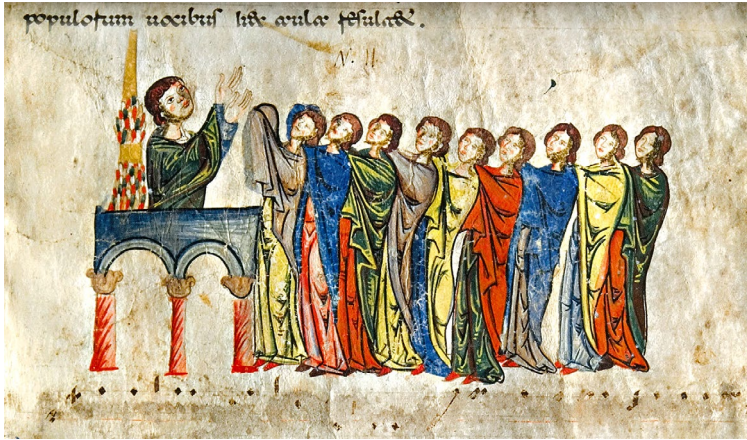 populorum uocibus hec aula resultet.
N. II.